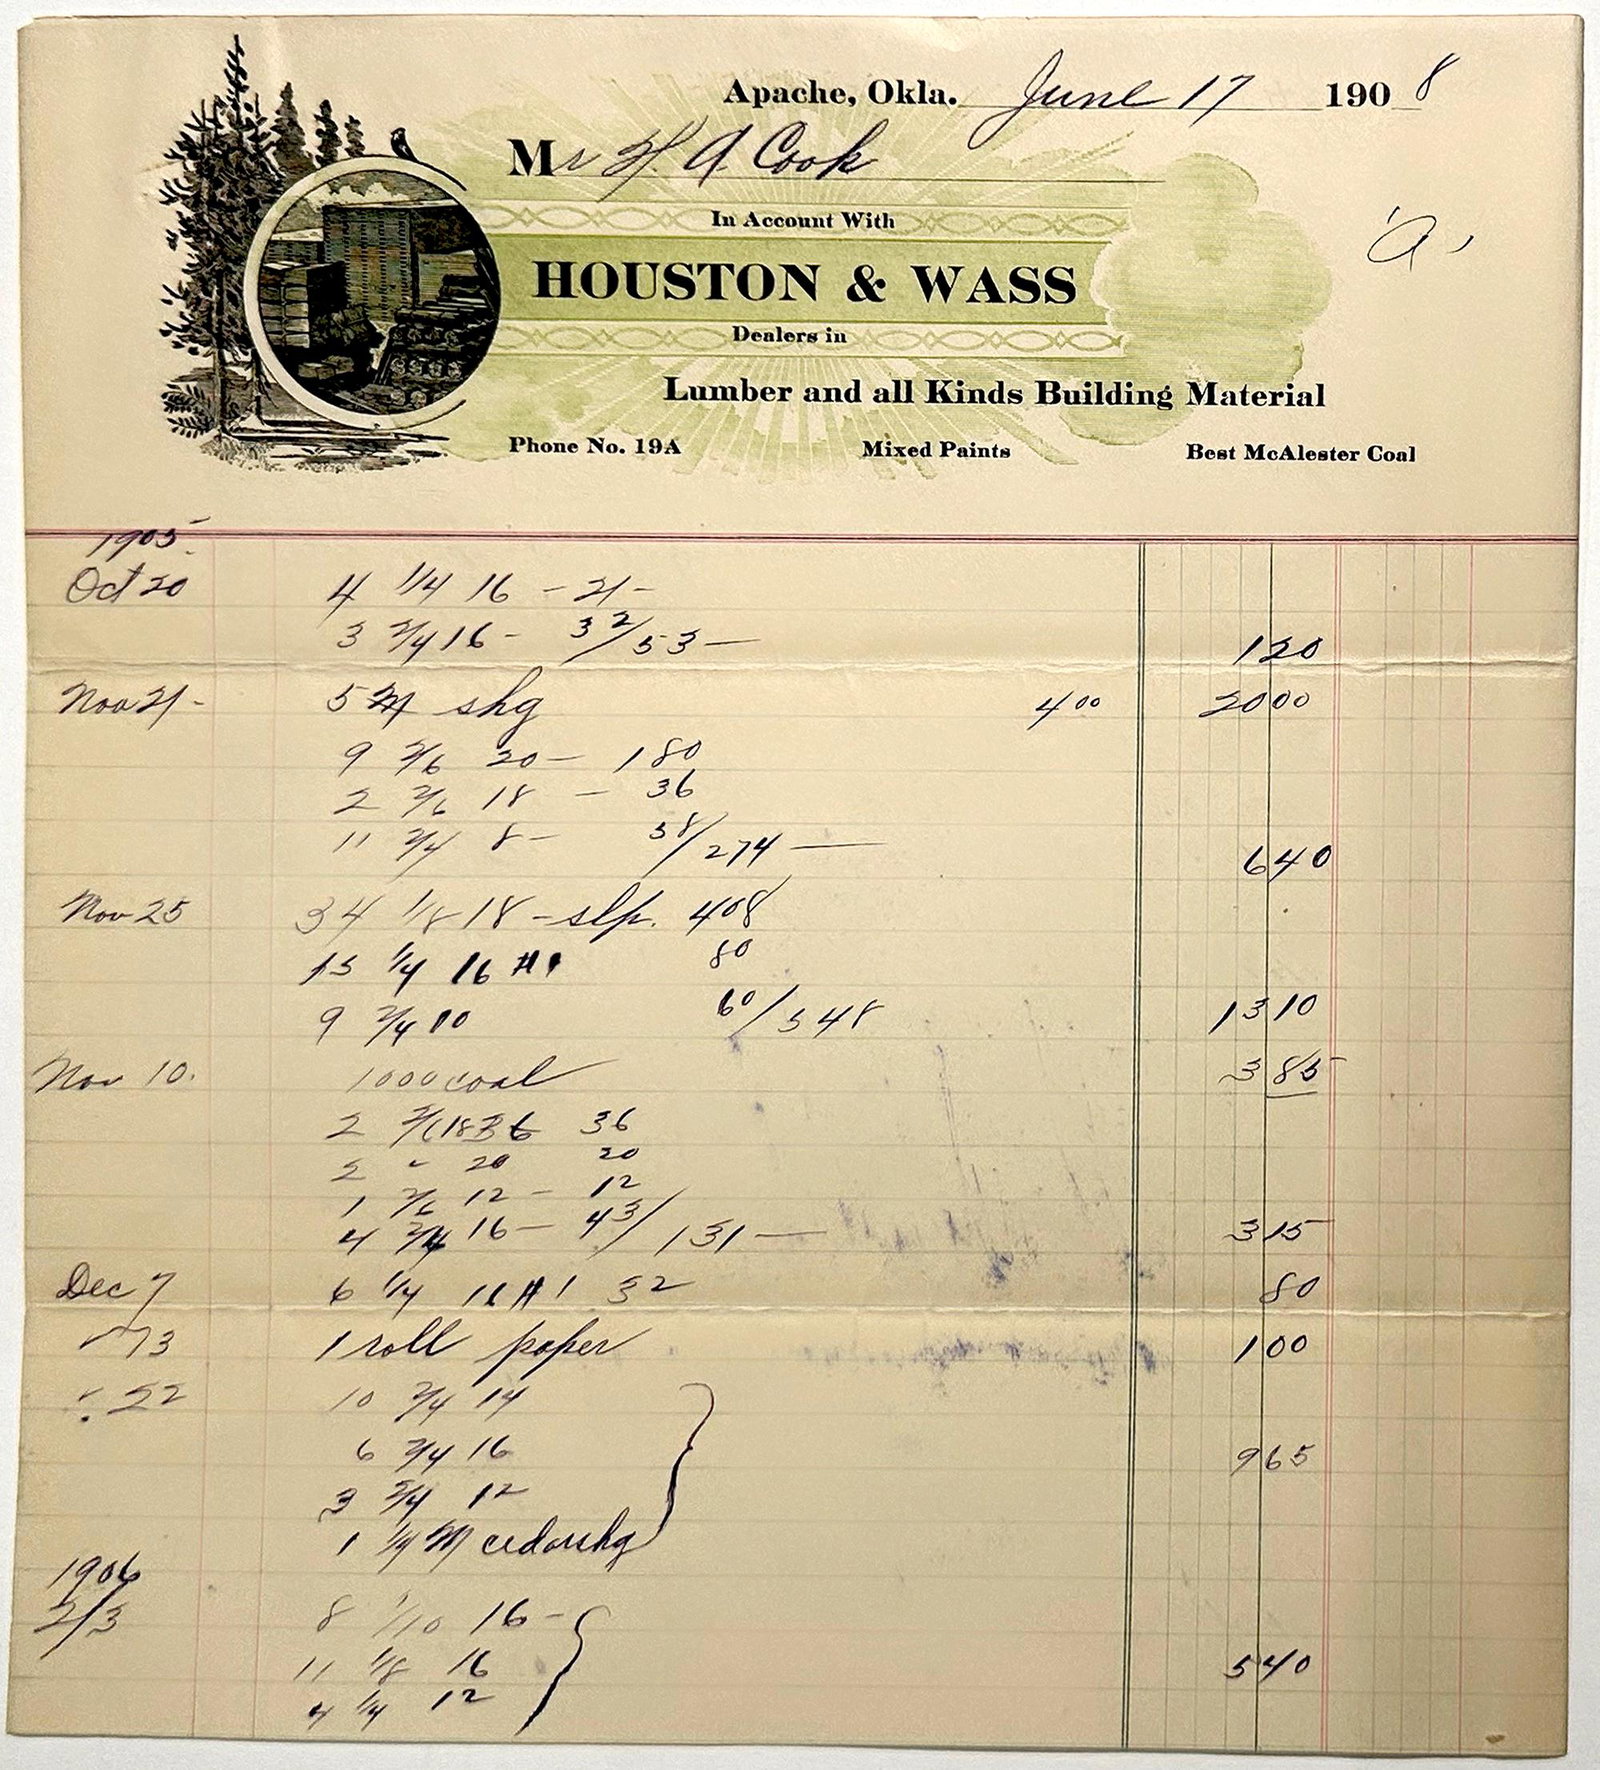 Apache, Okla. June 17 1908
Mr H. A. Cook
In Account With
HOUSTON & WASS
Dealers in
Lumber and all Kinds Building Material
Phone No. 19A Mixed Paints Best McAlester Coal
1905
Oct 20 4 1/4 16 - 21 -
3 2/4 16 - 32/53 — 1 20
Nov 21 - 5 M shg 4 00 20 00
9 2/6 20 - 180
2 2/6 18 - 36
11 2/4 8 - 58/274 — 6 40
Nov 25 34 1/8 18 - slp. 408
15 1/4 16 #1 80
9 2/4 10 60/548 13 10
Nov 10. 1000 coal 3 85
2 2/6 18 36 36
2 " 20 20
1 2/6 12 - 12
4 2/4 16 - 43/131 — 3 15
Dec 7 6 1/4 16 #1 32 80
" 13 1 roll paper 1 00
" 22 10 2/4 14
6 2/4 16 9 65
3 2/4 12
1 1/4 M cedar shg
1906
2/3 8 1/10 16 -
11 1/8 16 5 40
4 1/4 12